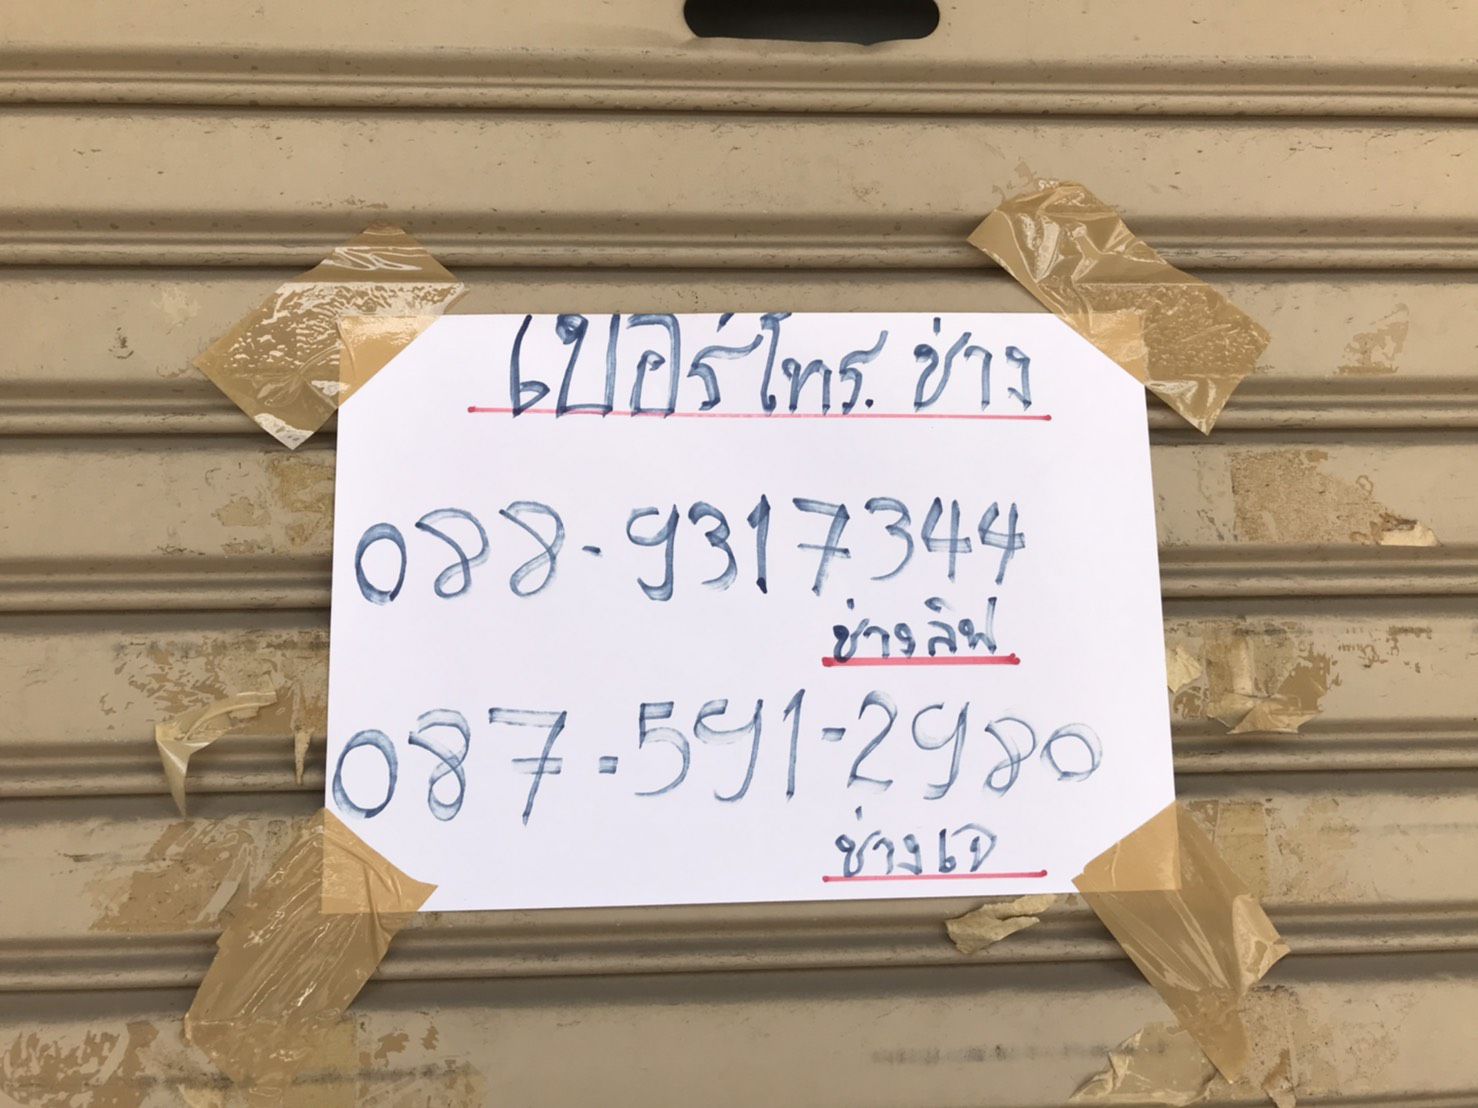 เบอร์โทร. ช่าง
088-9317344
ช่างลิฟ
087-591-2980
ช่างเจ